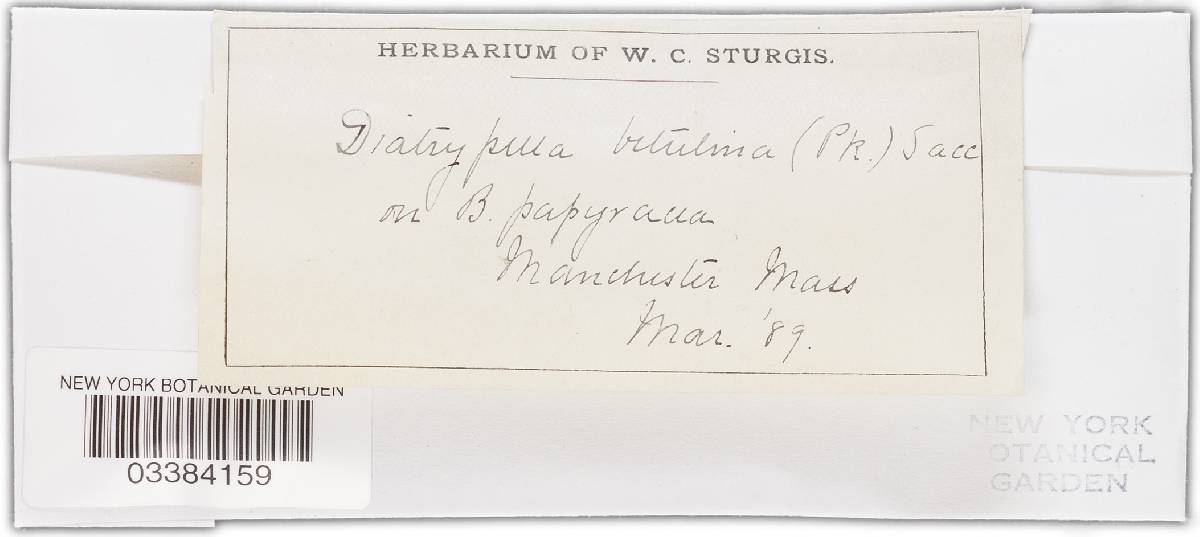 HERBARIUM OF W. C. STURGIS.
Diatrypella betulina (Pk.) Sacc
on B. papyracea
Manchester Mass
Mar. '89.
NEW YORK BOTANICAL GARDEN
03384159
NEW YORK
BOTANICAL
GARDEN